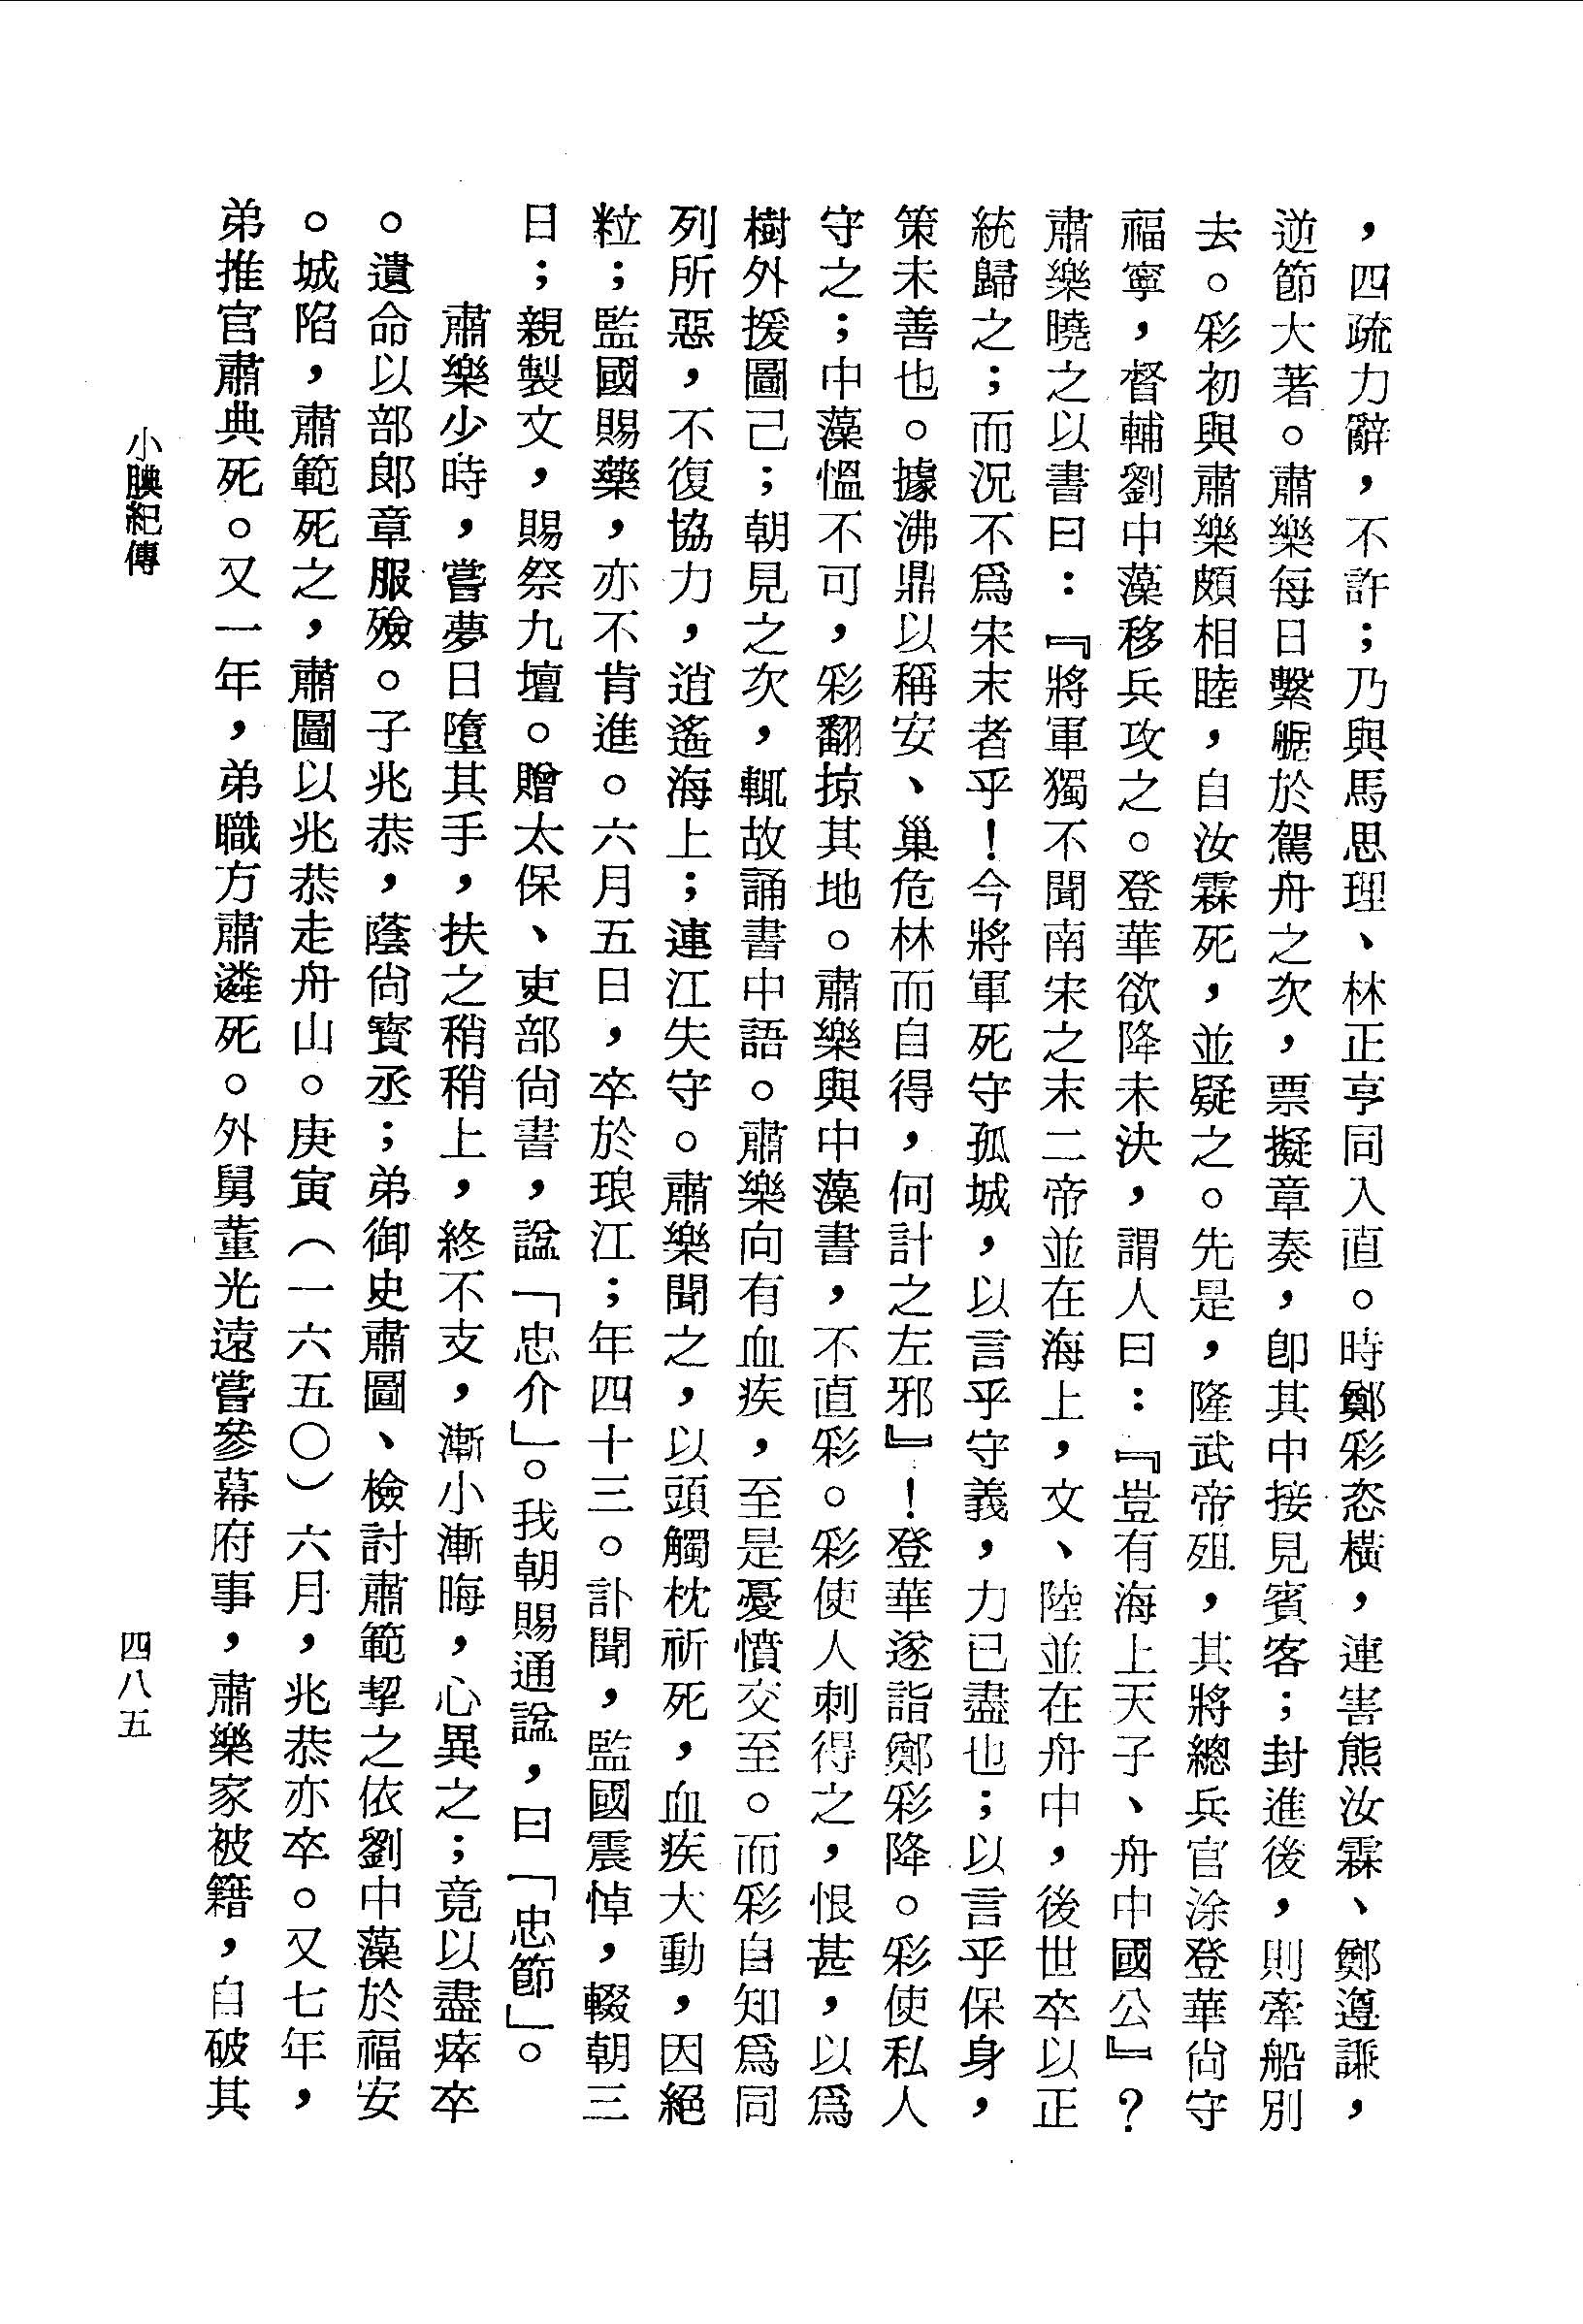 ，四疏力辭，不許；乃與馬思理、林正亨同入直。時鄭彩恣橫，連害熊汝霖、鄭遵謙，
逆節大著。肅樂每日繫艍於駕舟之次，票擬章奏，卽其中接見賓客；封進後，則牽船別
去。彩初與肅樂頗相睦，自汝霖死，並疑之。先是，隆武帝殂，其將總兵官涂登華尙守
福寧，督輔劉中藻移兵攻之。登華欲降未決，謂人曰：『豈有海上天子、舟中國公』？
肅樂曉之以書曰：『將軍獨不聞南宋之末二帝並在海上，文、陸並在舟中，後世卒以正
統歸之；而況不爲宋末者乎！今將軍死守孤城，以言乎守義，力已盡也；以言乎保身，
策未善也。據沸鼎以稱安、巢危林而自得，何計之左邪』！登華遂詣鄭彩降。彩使私人
守之；中藻慍不可，彩翻掠其地。肅樂與中藻書，不直彩。彩使人刺得之，恨甚，以爲
樹外援圖己；朝見之次，輒故誦書中語。肅樂向有血疾，至是憂憤交至。而彩自知爲同
列所惡，不復協力，逍遙海上；連江失守。肅樂聞之，以頭觸枕祈死，血疾大動，因絕
粒；監國賜藥，亦不肯進。六月五日，卒於琅江；年四十三。訃聞，監國震悼，輟朝三
日；親製文，賜祭九壇。贈太保、吏部尙書，諡「忠介」。我朝賜通諡，曰「忠節」。
肅樂少時，嘗夢日墮其手，扶之稍稍上，終不支，漸小漸晦，心異之；竟以盡瘁卒
。遺命以部郞章服殮。子兆恭，蔭尙寶丞；弟御史肅圖、檢討肅範挈之依劉中藻於福安
。城陷，肅範死之，肅圖以兆恭走舟山。庚寅（一六五〇）六月，兆恭亦卒。又七年，
弟推官肅典死。又一年，弟職方肅遴死。外舅董光遠嘗參幕府事，肅樂家被籍，自破其
小腆紀傳
四八五